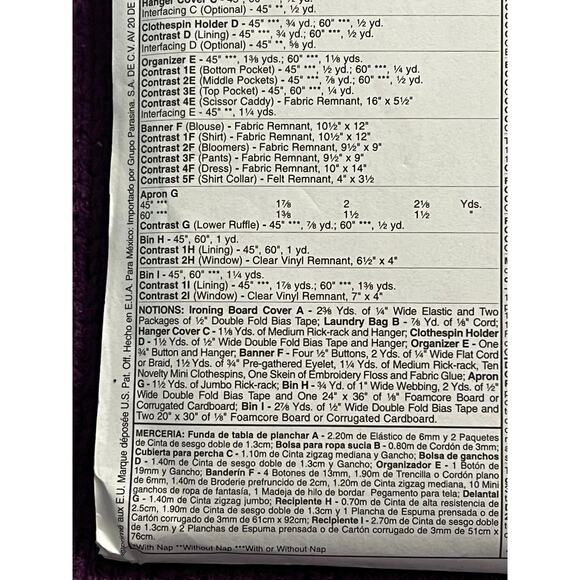 Hanger Cover C - 45",
Interfacing C (Optional) - 45" **, ½ yd.
Clothespin Holder D - 45" ***, ¾ yd.; 60" ***, ½ yd.
Contrast D (Lining) - 45" ***, ¾ yd.; 60" ***, ½ yd.
Interfacing D (Optional) - 45" **, ⅝ yd.
Organizer E - 45" ***, 1⅜ yds.; 60" ***, 1⅛ yds.
Contrast 1E (Bottom Pocket) - 45" ***, ½ yd.; 60" ***, ¼ yd.
Contrast 2E (Middle Pockets) - 45" ***, ⅞ yd.; 60" ***, ½ yd.
Contrast 3E (Top Pocket) - 45", 60" ***, ¼ yd.
Contrast 4E (Scissor Caddy) - Fabric Remnant, 16" x 5½"
Interfacing E - 45" **, 1¼ yds.
Banner F (Blouse) - Fabric Remnant, 10½" x 12"
Contrast 1F (Shirt) - Fabric Remnant, 10½" x 12"
Contrast 2F (Bloomers) - Fabric Remnant, 9½" x 9"
Contrast 3F (Pants) - Fabric Remnant, 9½" x 9"
Contrast 4F (Dress) - Fabric Remnant, 10" x 14"
Contrast 5F (Shirt Collar) - Felt Remnant, 4" x 3½"
Apron G
45" *** 1⅞ 2 2⅛ Yds.
60" *** 1⅜ 1½ 1½ "
Contrast G (Lower Ruffle) - 45" ***, ⅞ yd.; 60" ***, ½ yd.
Bin H - 45", 60", 1 yd.
Contrast 1H (Lining) - 45", 60", 1 yd.
Contrast 2H (Window) - Clear Vinyl Remnant, 6½" x 4"
Bin I - 45", 60" ***, 1¼ yds.
Contrast 1I (Lining) - 45" ***, 1⅞ yds.; 60" ***, 1⅜ yds.
Contrast 2I (Window) - Clear Vinyl Remnant, 7" x 4"
NOTIONS: Ironing Board Cover A - 2⅜ Yds. of ¼" Wide Elastic and Two
Packages of ½" Double Fold Bias Tape; Laundry Bag B - ⅞ Yd. of ⅛" Cord;
Hanger Cover C - 1⅛ Yds. of Medium Rick-rack and Hanger; Clothespin Holder
D - 1½ Yds. of ½" Wide Double Fold Bias Tape and Hanger; Organizer E - One
¾" Button and Hanger; Banner F - Four ½" Buttons, 2 Yds. of ¼" Wide Flat Cord
or Braid, 1½ Yds. of ¾" Pre-gathered Eyelet, 1¼ Yds. of Medium Rick-rack, Ten
Novelty Mini Clothespins, One Skein of Embroidery Floss and Fabric Glue; Apron
G - 1½ Yds. of Jumbo Rick-rack; Bin H - ¾ Yd. of 1" Wide Webbing, 2 Yds. of ½"
Wide Double Fold Bias Tape and One 24" x 36" of ⅛" Foamcore Board or
Corrugated Cardboard; Bin I - 2⅞ Yds. of ½" Wide Double Fold Bias Tape and
Two 20" x 30" of ⅛" Foamcore Board or Corrugated Cardboard.
MERCERIA: Funda de tabla de planchar A - 2.20m de Elástico de 6mm y 2 Paquetes
de Cinta de sesgo doble de 1.3cm; Bolsa para ropa sucia B - 0.80m de Cordón de 3mm;
Cubierta para percha C - 1.10m de Cinta zigzag mediana y Gancho; Bolsa de ganchos
D - 1.40m de Cinta de sesgo doble de 1.3cm y Gancho; Organizador E - 1 Botón de
19mm y Gancho; Banderín F - 4 Botones de 13mm, 1.90m de Trencilla o Cordón plano
de 6mm, 1.40m de Broderie prefruncido de 2cm, 1.20m de Cinta zigzag mediana, 10 Mini
ganchos de ropa de fantasía, 1 Madeja de hilo de bordar Pegamento para tela; Delantal
G - 1.40m de Cinta zigzag jumbo; Recipiente H - 0.70m de Cinta de alta resistencia de
2.5cm, 1.90m de Cinta de sesgo doble de 1.3cm y 1 Plancha de Espuma prensada o de
Cartón corrugado de 3mm de 61cm x 92cm; Recipiente I - 2.70m de Cinta de sesgo doble
de 1.3cm y 2 Planchas de Espuma prensada o de Cartón corrugado de 3mm de 51cm x
76cm.
*With Nap **Without Nap ***With or Without Nap
aux E.U. Marque déposée U.S. Pat. Off. Hecho en E.U.A. Para México: Importado por Grupo Parasina. S.A. DE C.V. AV 20 DE